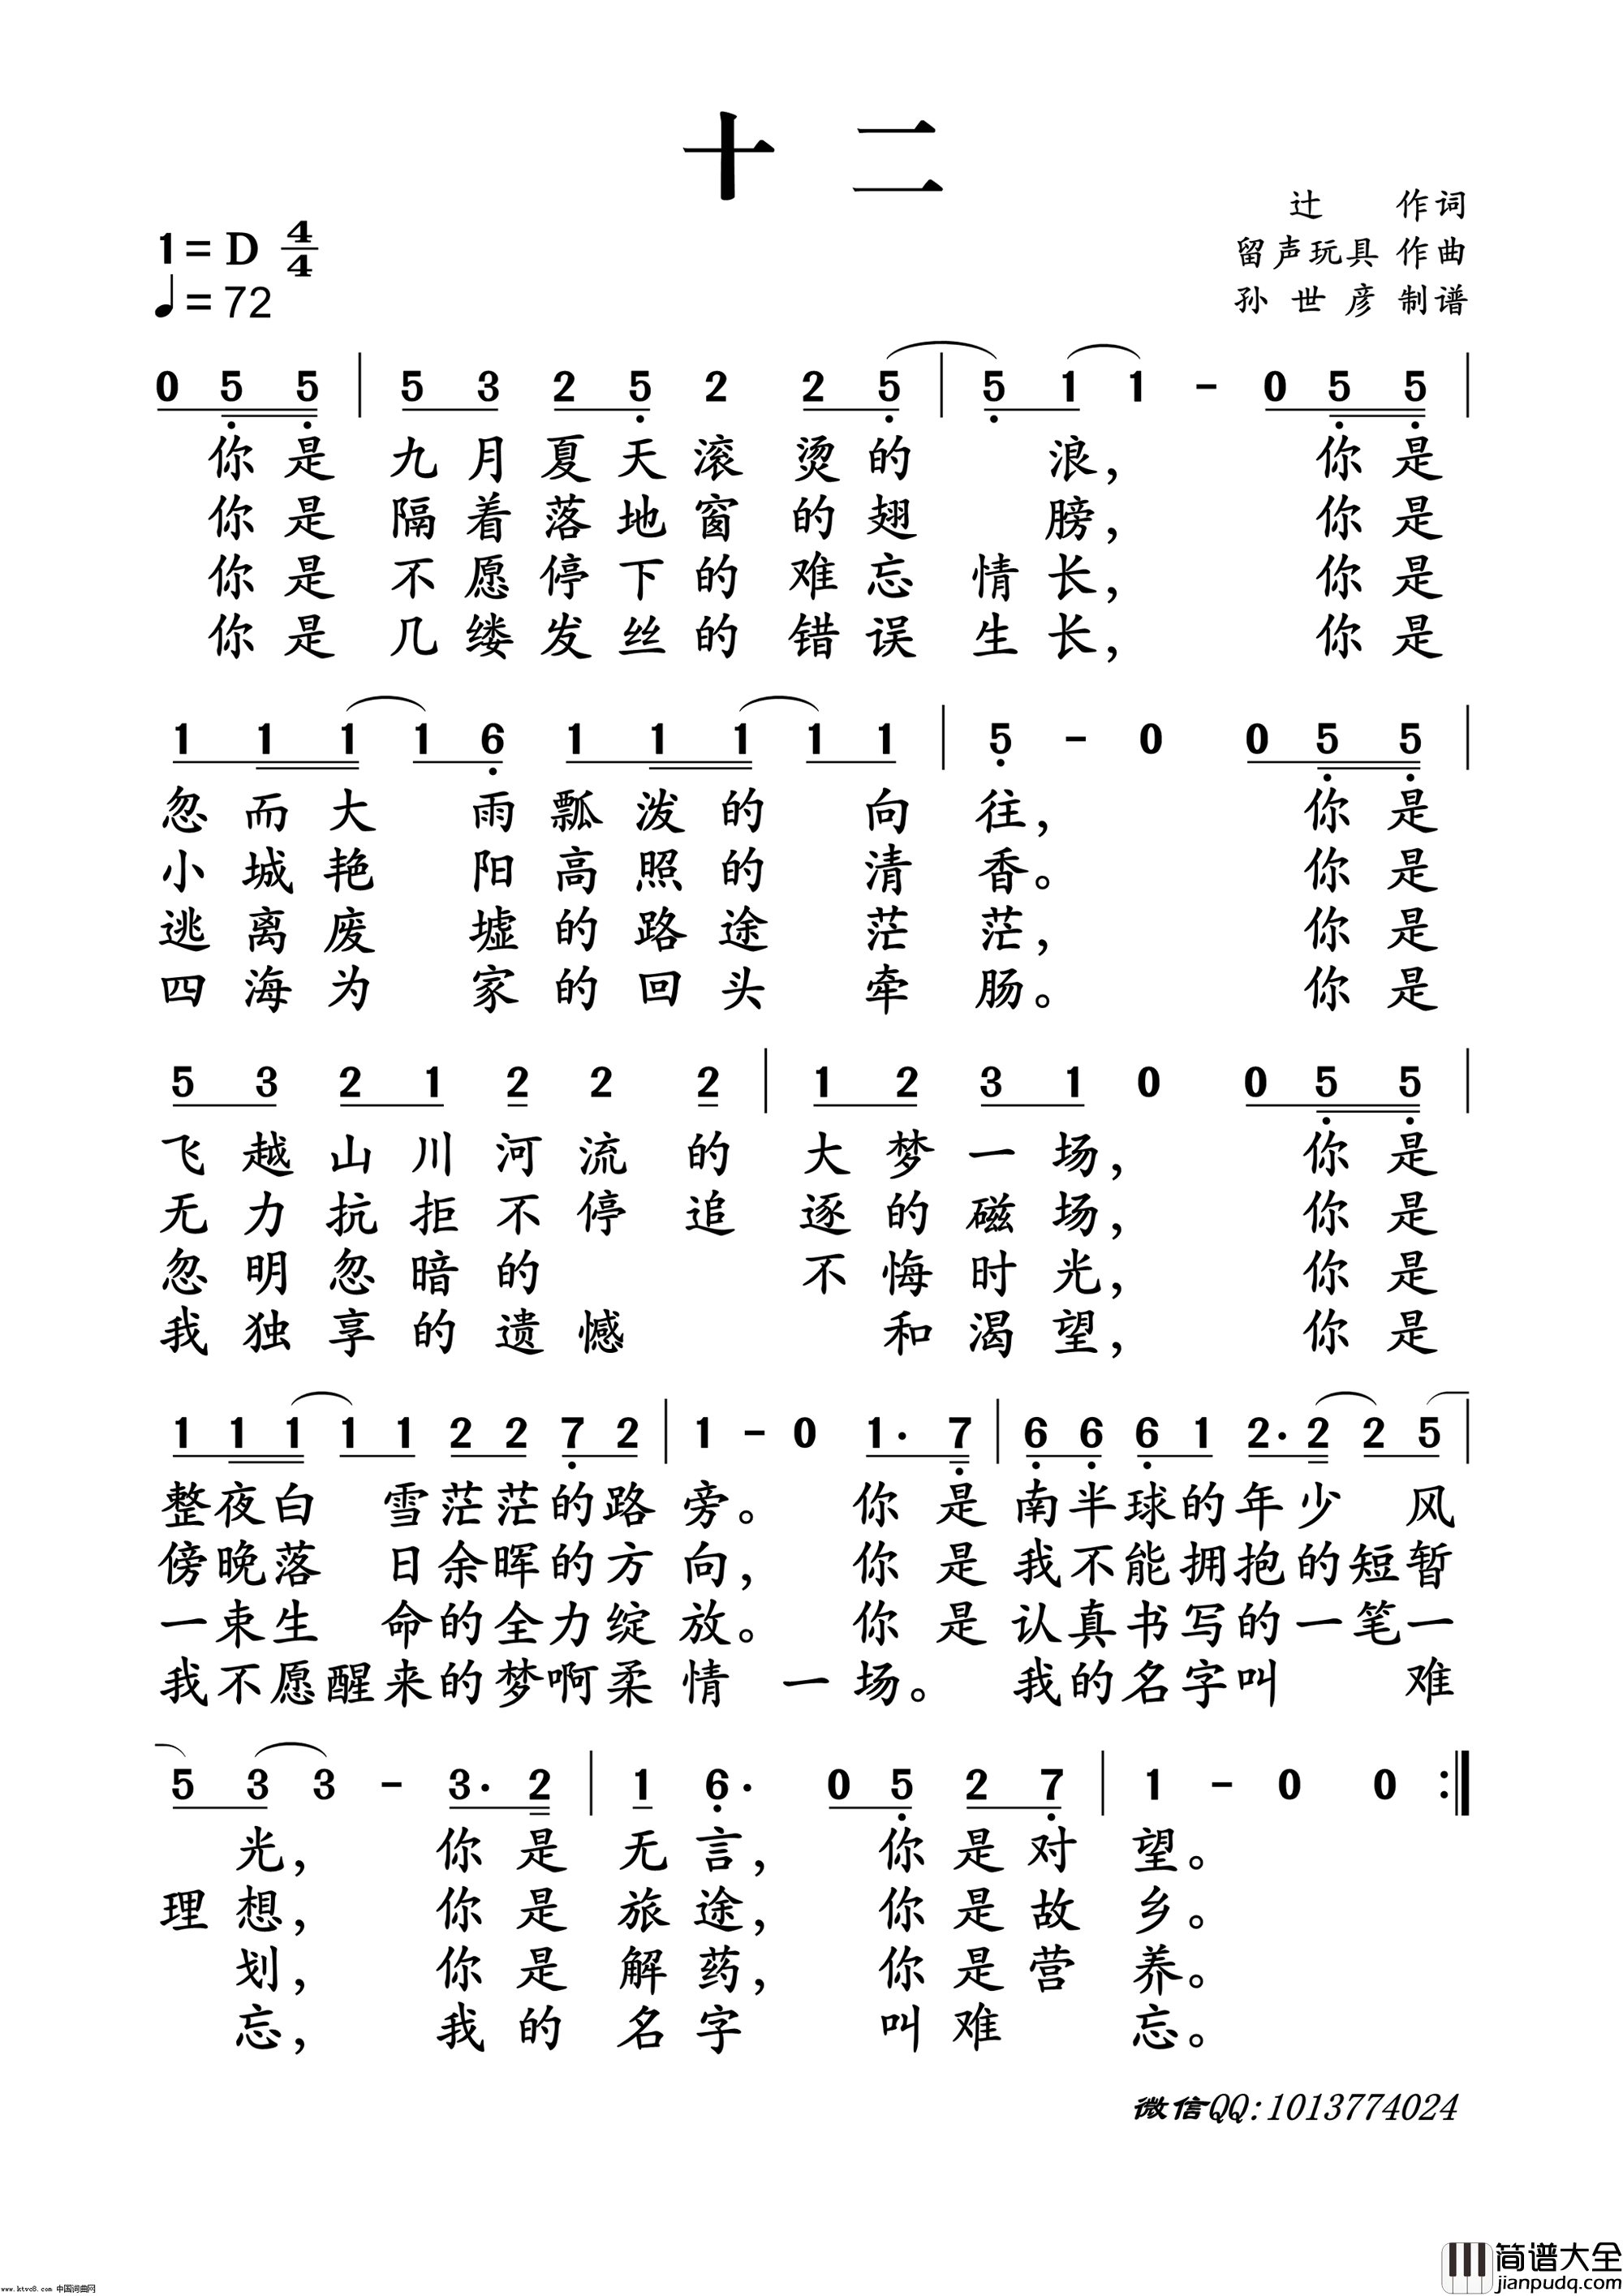 十 二
辻 作词
1=D 4/4
留声玩具 作曲
♩=72
孙世彦 制谱
0 5 5 | 5 3 2 5 2 2 5 | 5 1 1 - 0 5 5 |
你是九月夏天滚烫的浪， 你是
你是隔着落地窗的翅膀， 你是
你是不愿停下的难忘情长， 你是
你是几缕发丝的错误生长， 你是
1 1 1 1 6 1 1 1 1 1 | 5 - 0 0 5 5 |
忽而大雨瓢泼的向往， 你是
小城艳阳高照的清香。 你是
逃离废墟的路途茫茫， 你是
四海为家的回头牵肠。 你是
5 3 2 1 2 2 2 | 1 2 3 1 0 0 5 5 |
飞越山川河流的大梦一场， 你是
无力抗拒不停追逐的磁场， 你是
忽明忽暗的 不悔时光， 你是
我独享的遗憾 和渴望， 你是
1 1 1 1 1 2 2 7 2 | 1 - 0 1· 7 | 6 6 6 1 2· 2 2 5 |
整夜白雪茫茫的路旁。 你是南半球的年少风
傍晚落日余晖的方向， 你是我不能拥抱的短暂
一束生命的全力绽放。 你是认真书写的一笔一
我不愿醒来的梦啊柔情一场。 我的名字叫难
5 3 3 - 3· 2 | 1 6· 0 5 2 7 | 1 - 0 0 :|
光， 你是无言， 你是对望。
理想， 你是旅途， 你是故乡。
划， 你是解药， 你是营养。
忘， 我的名字 叫难忘。
微信QQ:1013774024
简谱大全
www.ktvc8.com 中国词曲网
jianpudq.com